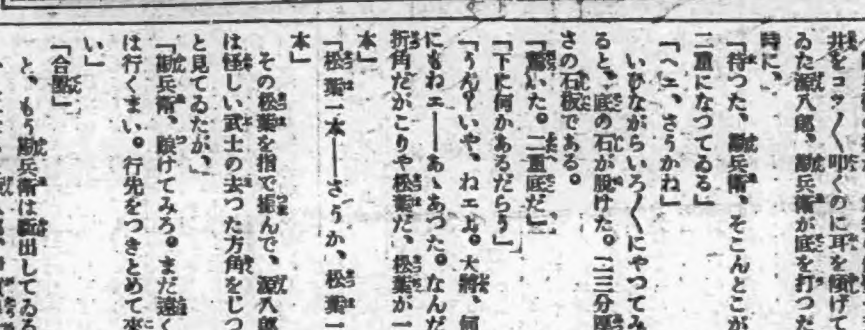 井をコツ〳〵叩くのに耳を傾げて
ゐた源八郎、勘兵衛が底を打つた
時に、
「待つた、勘兵衛、そこんとこが
二重になつてゐる」
「へエ、さうかね」
いひながらいろ〳〵にやつてみ
ると、底の石が脱けた。二三分厚
さの石板である。
「驚いた。二重底だ」
「下に何かあるだらう」
「うん？いや、ねエな。大將、何
にもねエ――あゝあつた。なんだ
折角だがこりや松葉だ、松葉が一
本」
「松葉一本――さうか、松葉一
本」
その松葉を指で摘んで、源八郎
は怪しい武士の去つた方角をじつ
と見てゐたが、
「勘兵衛、跟けてみろ。まだ遠く
は行くまい。行先をつきとめて來
い」
「合點」
と、もう勘兵衛は驅出してゐる